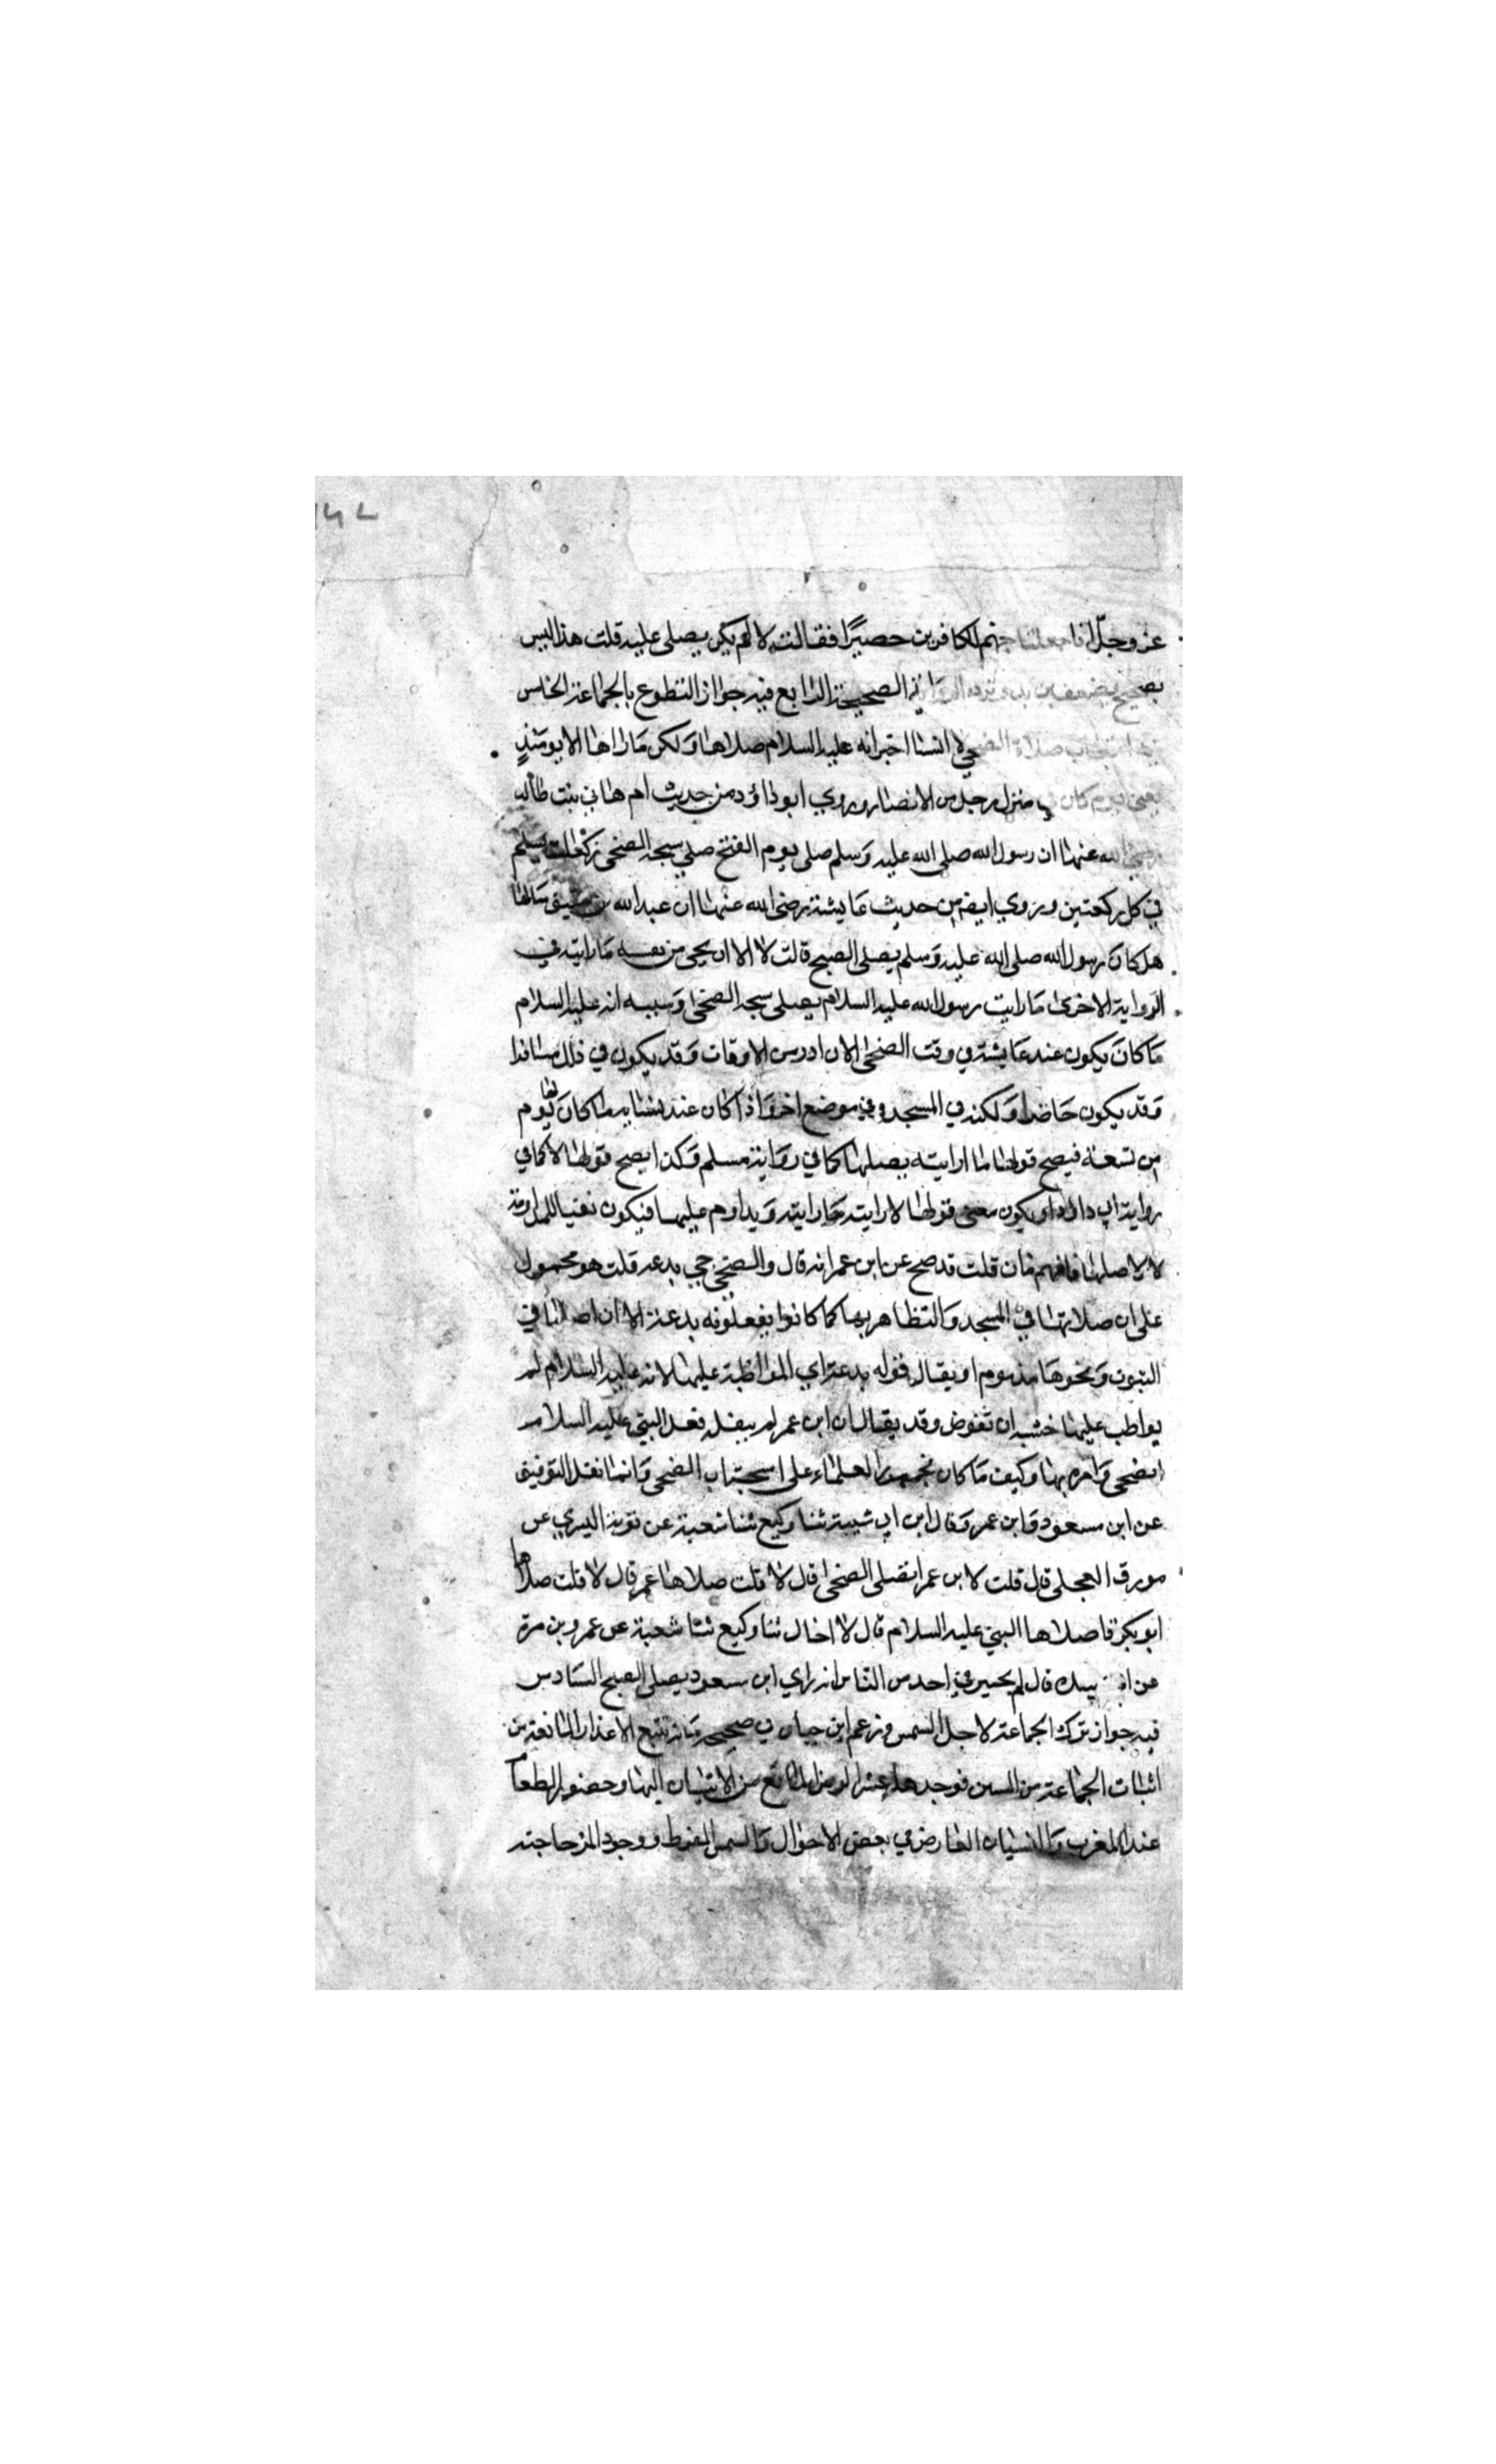 عز وجل انا جعلنا جهنم للكافرين حصيرا فقالت لا لم يكن يصلى عليه قلت هذا ليس
بصحيح الصحيحة الرابع فيه جواز التطوع بالجماعة الخامس
صلاة الضحى لا انسا اخبر انه عليه السلام صلاها ولكن ما راها الا يومئذ
يعني يوم كان في منزل رجل من الانصار وروي ابو داؤد من حديث ام هاني بنت طالب
الله عنها ان رسول الله صلى الله عليه وسلم صلى يوم الفتح صلي سبحه الضحى ركعات يسلم
في كل ركعتين وروي ايضا من حديث عايشة رضي الله عنها ان عبد الله بن شقيق سالها
هل كان رسول الله صلى الله عليه وسلم يصلى الصبح قالت لا الا ان يجي من ما رايته في
الرواية الاخرى ما رايت رسول الله عليه السلام يصلى سبحه الضحى وسببه انه عليه السلام
ما كان يكون عند عايشة في وقت الضحى الا ن ادر من الاوقات وقد يكون في ذلك مسافرا
وقد يكون حاضرا ولكنه في المسجد وفي موضع اخر واذا كان عند نسايه ما كان لها يوم
من تسعة فيصح قولها ما ارايته يصليها كما في رواية مسلم وكذا يصح قولها لا كما في
رواية ابي داؤد او يكون معنى قولها لا رايته ما رايته ويداوم عليها فيكون نفيا للمداومة
لا لاصلها فافهم فان قلت قد صح عن ابن عمر انه قال والضحى هي بدعه قلت هو محمول
على ان صلاتها في المسجد والتظاهر بها كما كانوا يفعلونه بدعة الا ان اصلها في
البيوت ونحوها مذموم او يقال قوله بدعة اي المواظبة عليها لانه عليه السلام لم
يواظب عليها خشيه ان تفوض وقد يقال ان ابن عمر لم يبغله فعل النبي عليه السلام
الضحى وامره بها وكيف ما كان فجمهور العلماء على استحباب الضحى وانما نقل التوقيف
عن ابن مسعود وابن عمر وقال ابن ابي شيبة ثنا وكيع ثنا شعبة عن توبة اليبري عن
مورق العجلى قال قلت لابن عمر اتصلى الضحى قال لا قلت صلاها عمر قال لا قلت صلاها
ابو بكر قا صلاها النبي عليه السلام قال لا اخال ثنا وكيع ثنا شعبة عن عمرو بن مرة
عن قال لم يخبرني احد من الناس انه راي ابن مسعود يصلى الصبح السادس
فيه جواز ترك الجماعة لاجل السمن وزعم ابن حبان في صحيحه انه تتبع الاعذار المانعة من
اثبات الجماعة من السنن فوجدها عشرا المرض المانع من الاتيان اليها وحضور الطعام
عند المغرب والنسيان العارض في بعض الاحوال والسمن المفرط ووجود المرء حاجته